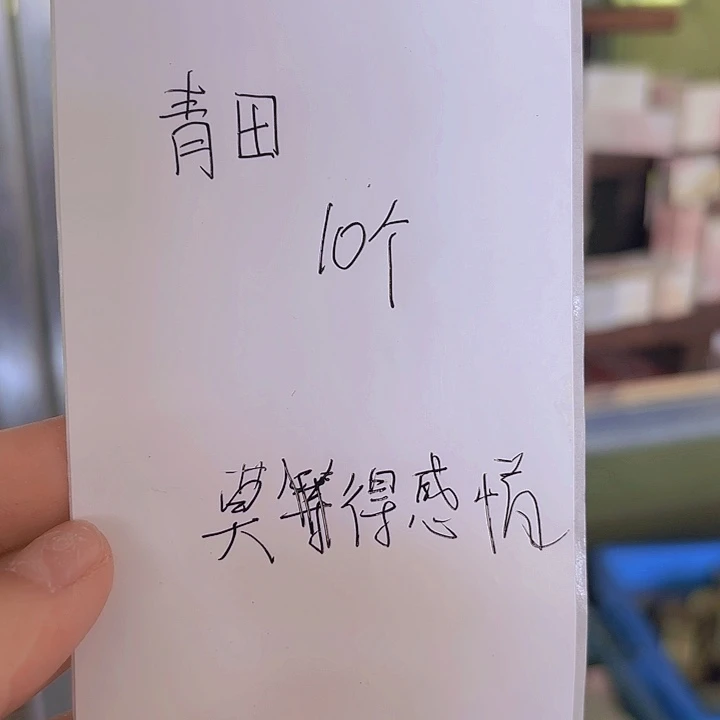 青田
10个
莫得感情